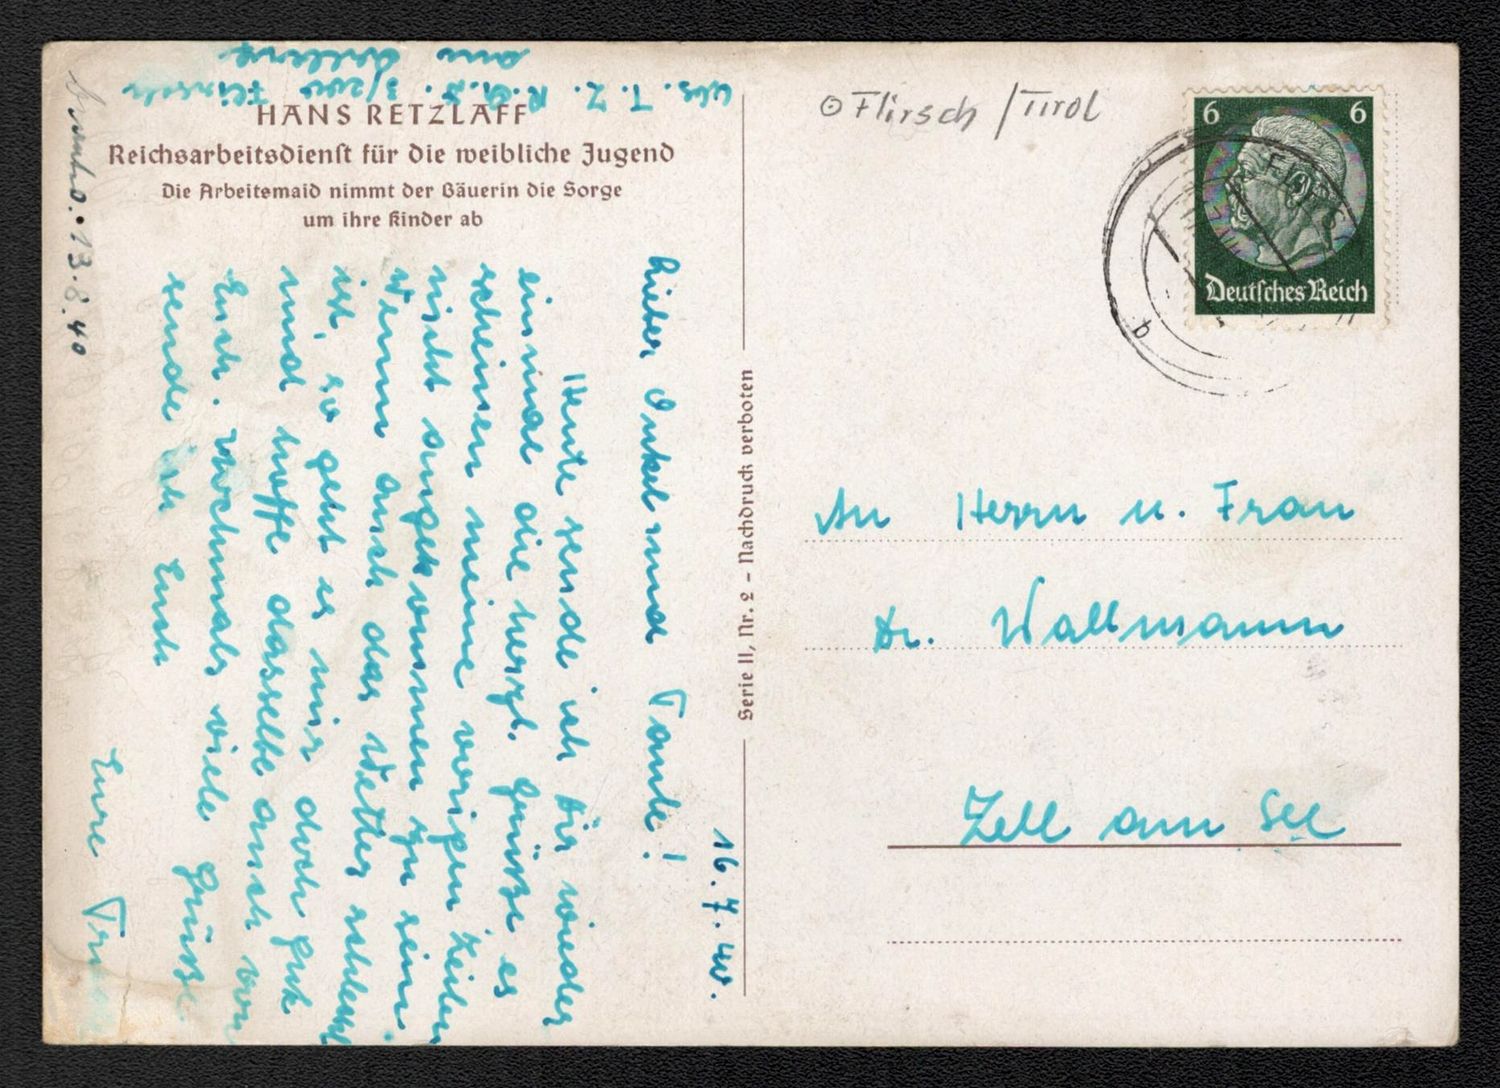 HANS RETZLAFF
Reichsarbeitsdienst für die weibliche Jugend
Die Arbeitsmaid nimmt der Bäuerin die Sorge
um ihre Kinder ab
Abs. T. Z. R.A.D. 3/200 Flirsch
am Arlberg
16.7.40.
Lieber Onkel und Tante!
Heute sende ich Dir wieder
einmal die herzl. Grüße es
scheinen meine vorigen Zeilen
nicht angekommen zu sein.
Wenn auch das Wetter schlecht
ist, so geht es mir doch gut
und hoffe dasselbe auch von
Euch. Nochmals viele Grüße
sende ich Euch
Eure
13.8.40
Serie II, Nr. 2 - Nachdruck verboten
⊙ Flirsch / Tirol
6 6
Deutsches Reich
b
An Herrn u. Frau
Dr. Wallmann
Zell am See